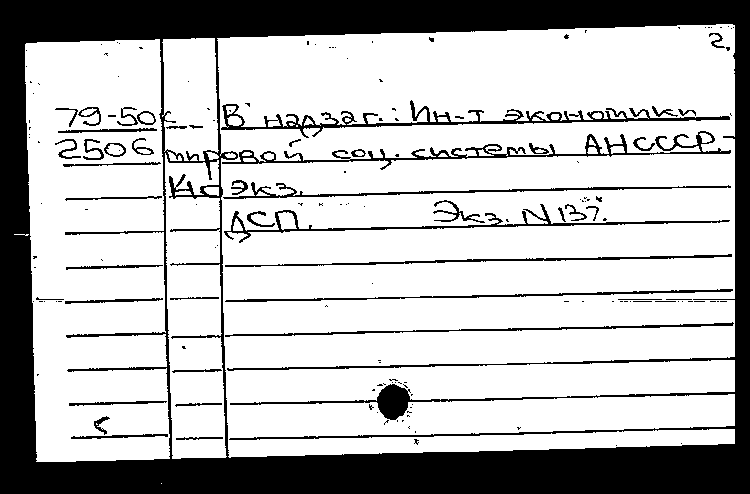 2.
79-50к В надзаг.: Ин-т экономики
2506 мировой соц. системы АН СССР.-
140 экз.
ДСП. Экз. N 137.